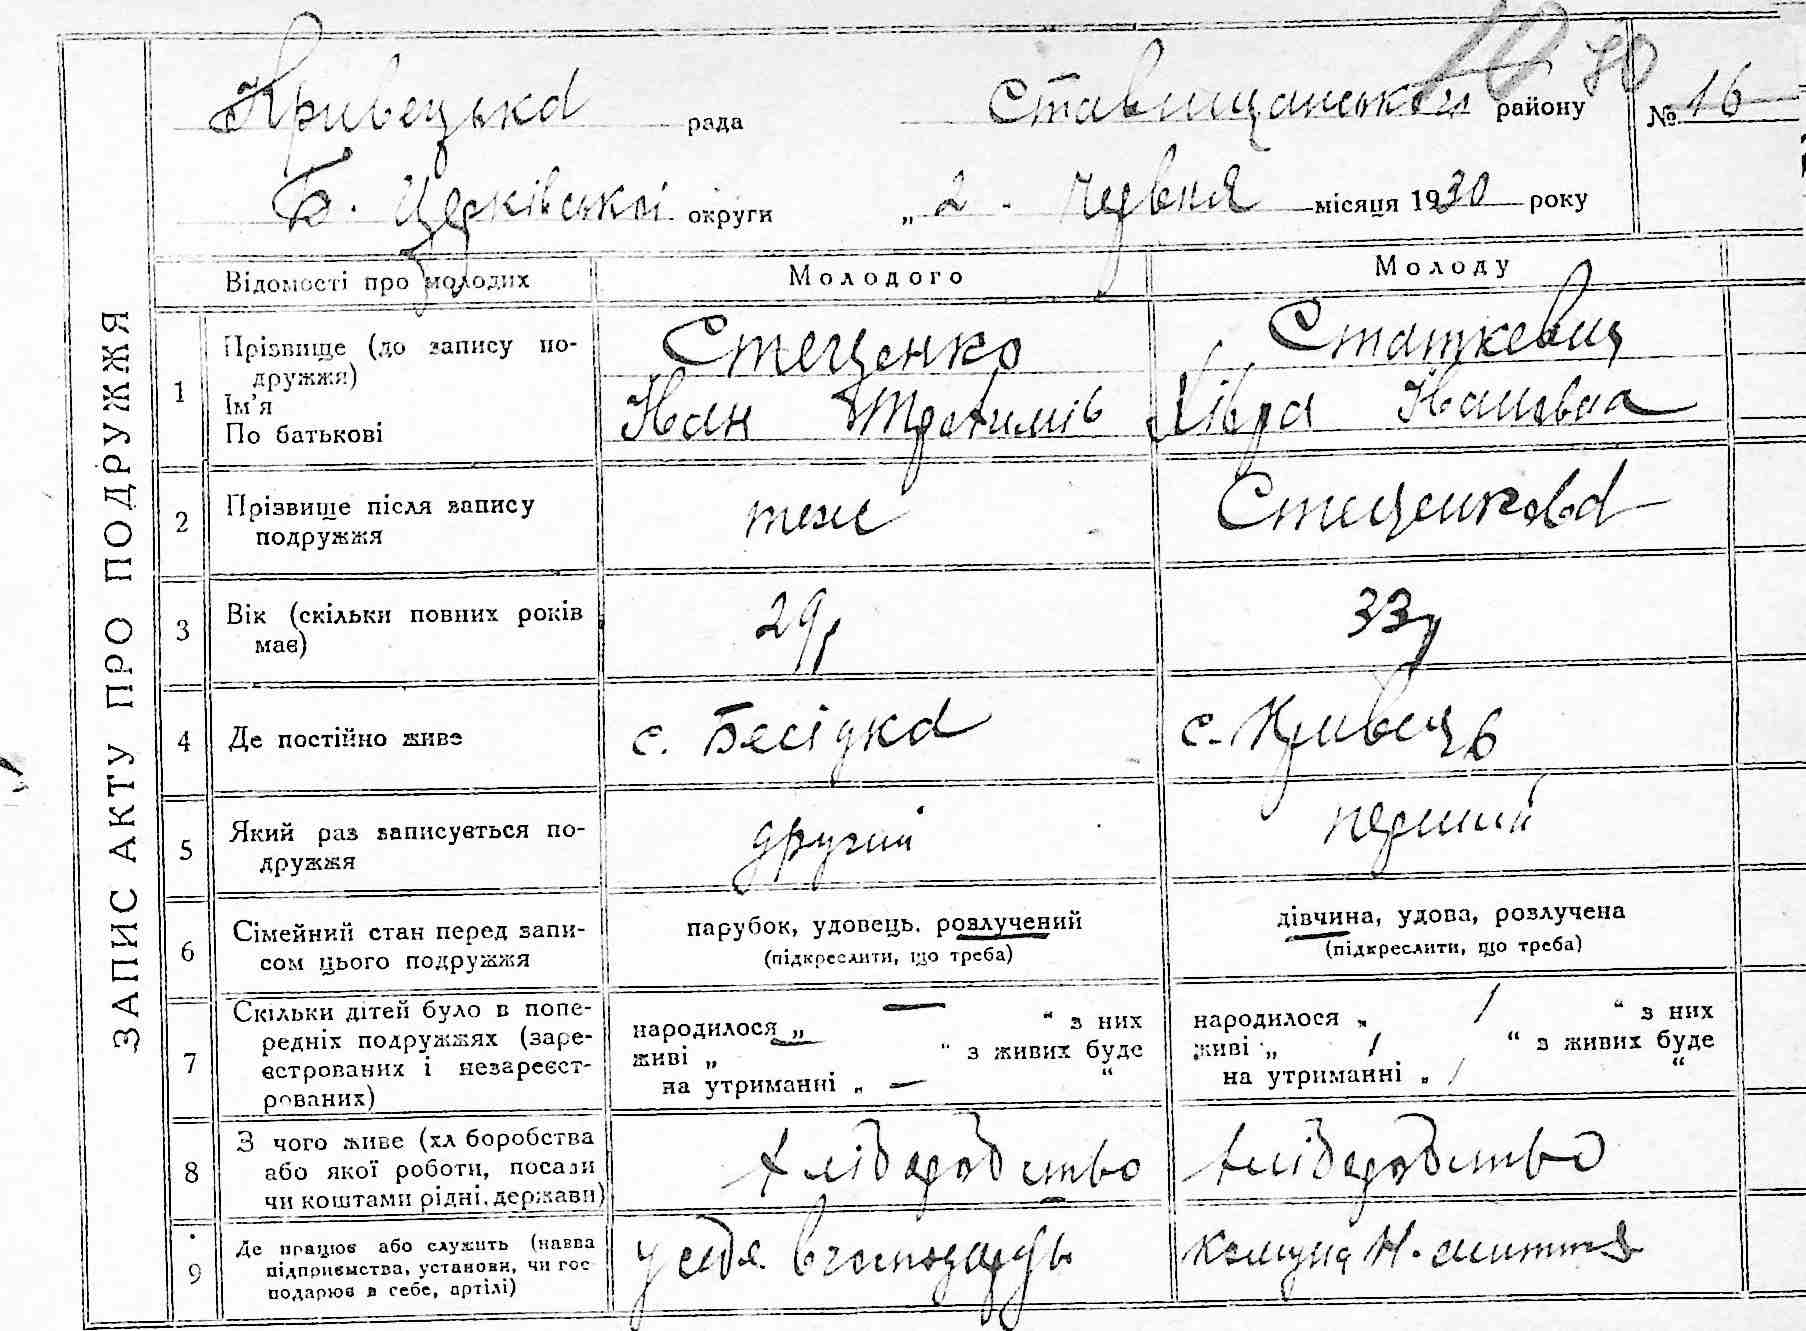 ЗАПИС АКТУ ПРО ПОДРУЖЖЯ
10 80
Кривецька рада Ставищанського району № 16
Б. Церківської округи „ 2 - Червня місяця 1930 року
Відомості про молодих Молодого Молоду
1 Прізвище (до запису по-
дружжя)
Ім’я
По батькові
Стеценко
Іван Трохимів
Статкевич
Хівря Івановна
2 Прізвище після запису
подружжя
теж
Стеценкова
3 Вік (скільки повних років
має)
29р
33р
4 Де постійно живе
с. Бесідка
с. Кривець
5 Який раз записується по-
дружжя
другий
перший
6 Сімейний стан перед запи-
сом цього подружжя
парубок, удовець, розлучений
(підкреслити, що треба)
дівчина, удова, розлучена
(підкреслити, що треба)
7 Скільки дітей було в попе-
редніх подружжях (заре-
єстрованих і незареєст-
рованих)
народилося „ — “ з них
живі „ “ з живих буде
на утриманні „ — “
народилося „ / “ з них
живі „ / “ з живих буде
на утриманні „ / “
8 З чого живе (хлiборобства
або якої роботи, посади
чи коштами рідні, держави)
хліборобство
хліборобство
9 Де працює або служить (назва
підприємства, установи, чи гос-
подарює в себе, артілі)
у себе в господарсь
комуна Н. життя